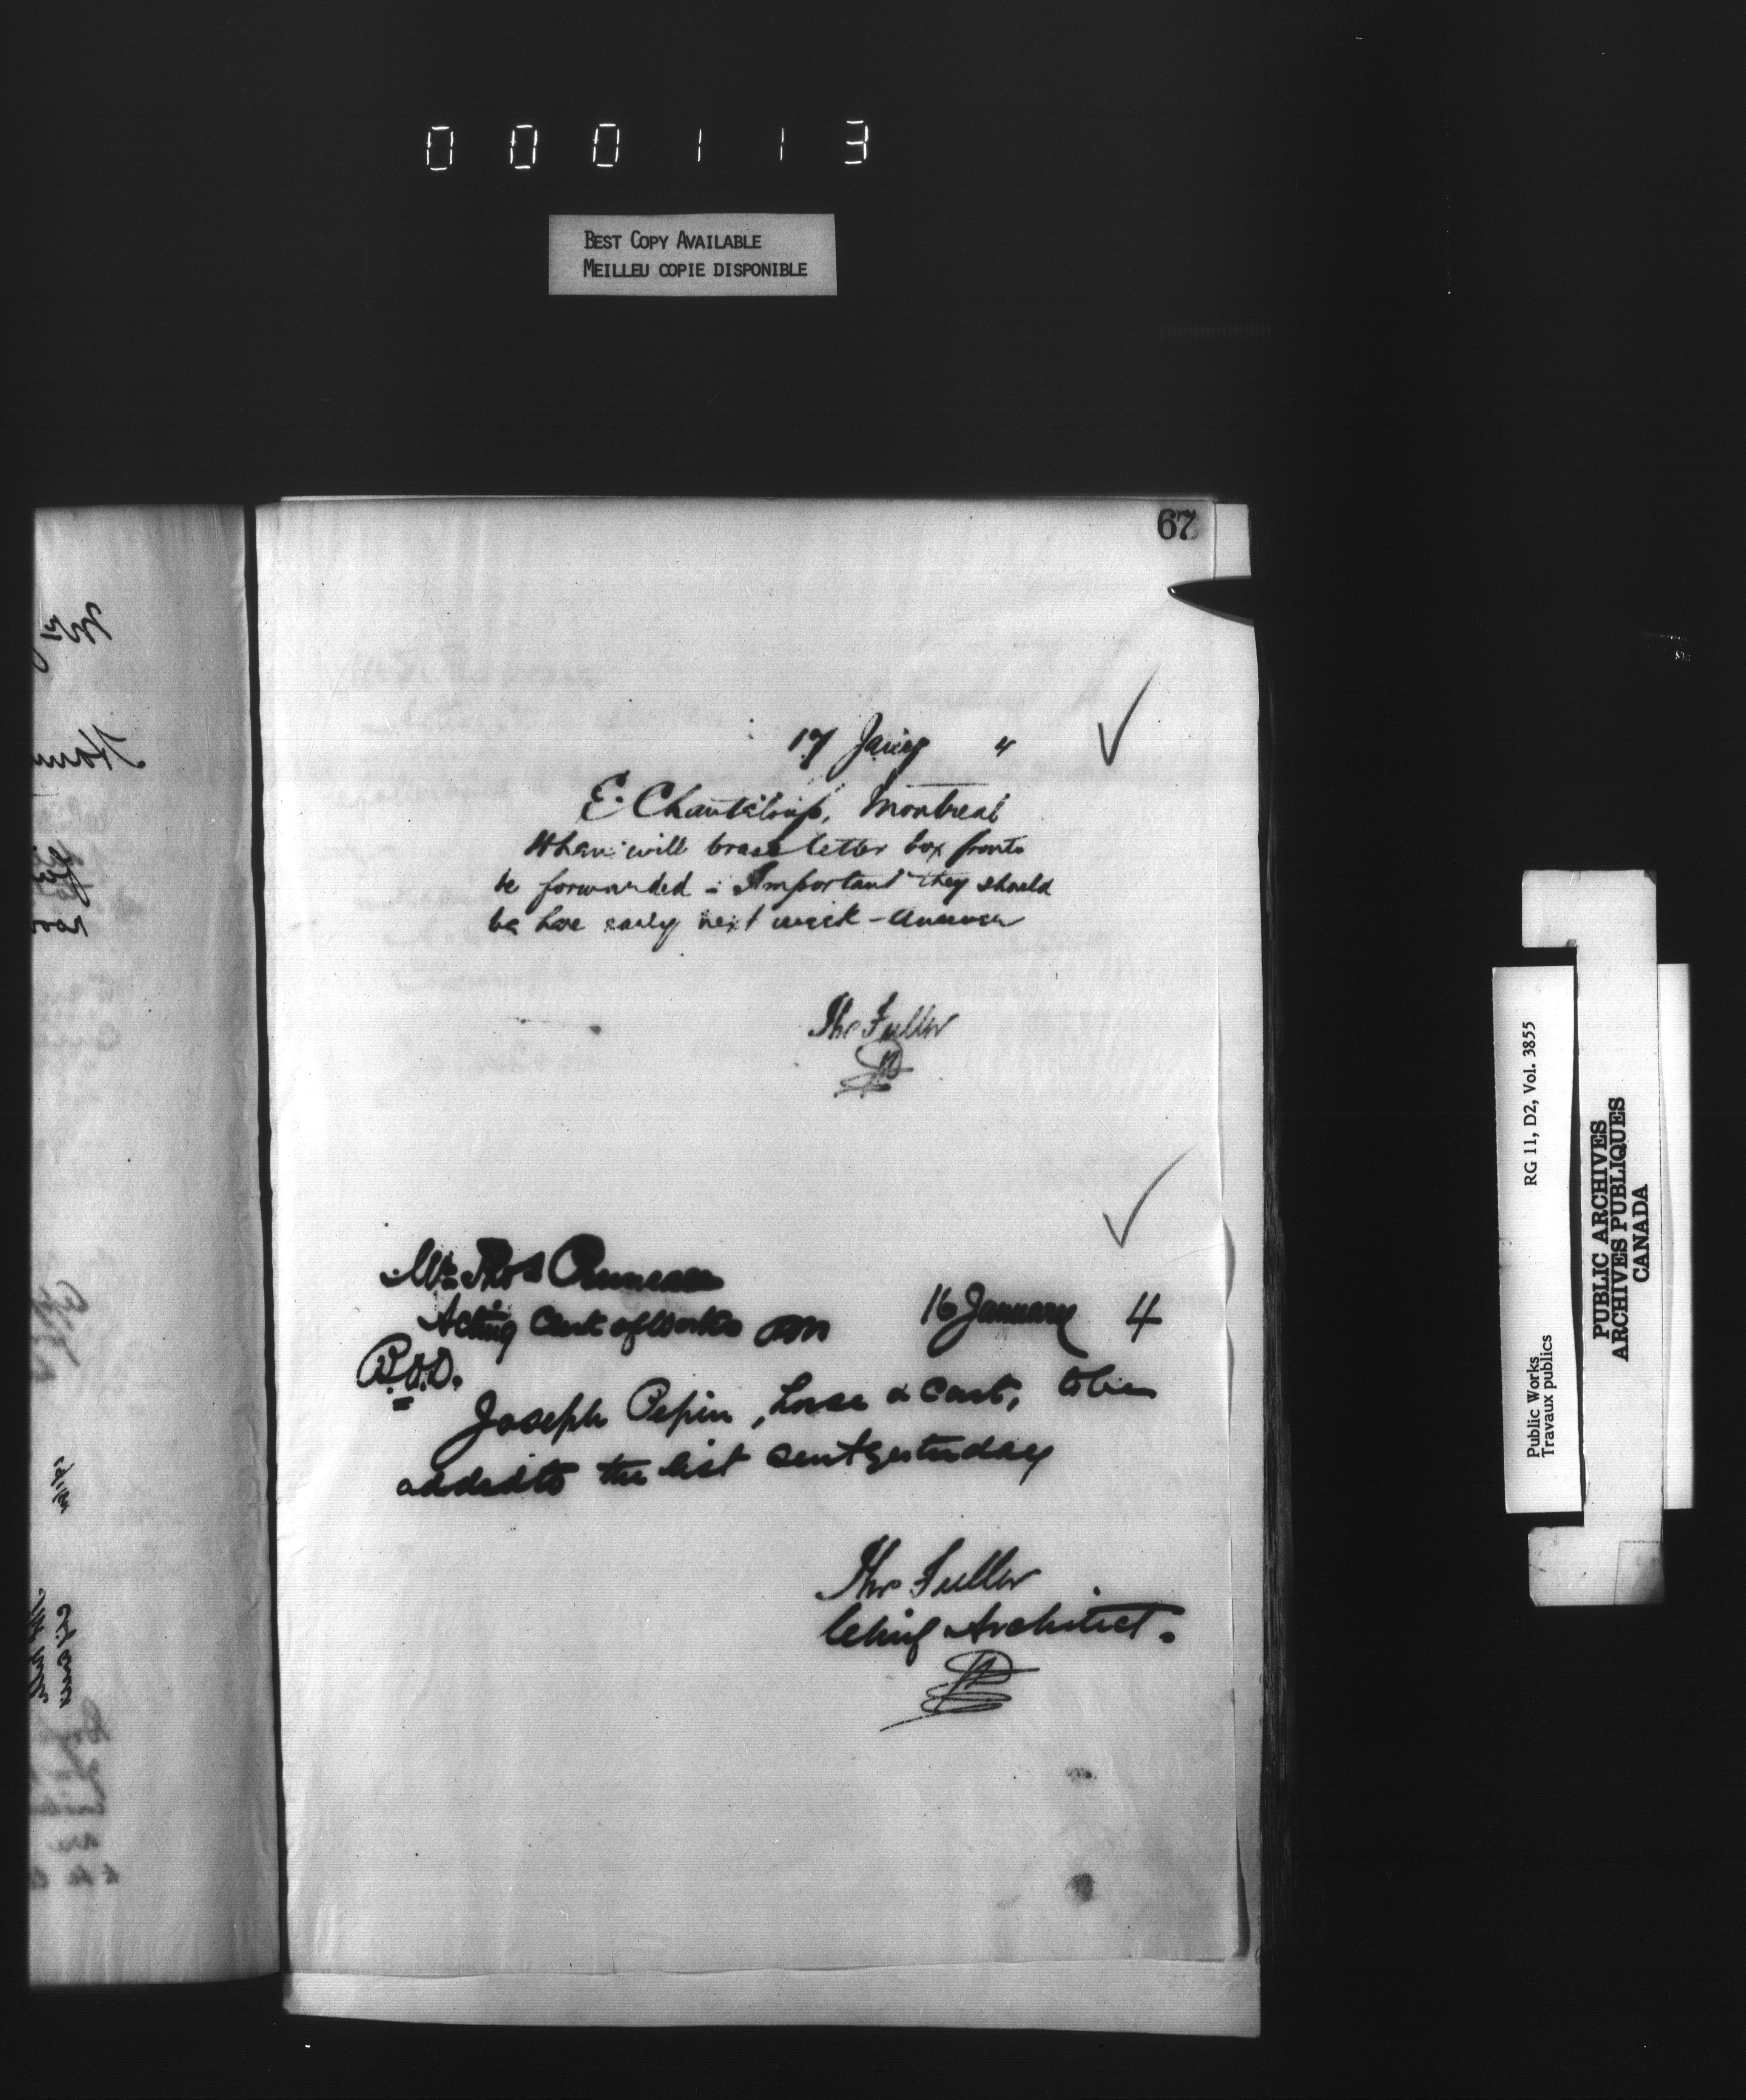 000113
BEST COPY AVAILABLE
MEILLEU COPIE DISPONIBLE
67
17 Jany 4
E. Chanteloup, Montreal
When will brass letter box fronts
be forwarded - Important they should
be here early next week - Answer
Thos Fuller
Mr Thos
Acting Clerk of Works
16 January 4
Joseph Pepin, horse & cart, to be
added to the list sent yesterday
Thos Fuller
Chief Architect.
Public Works RG 11, D2, Vol. 3855
Travaux publics
PUBLIC ARCHIVES
ARCHIVES PUBLIQUES
CANADA